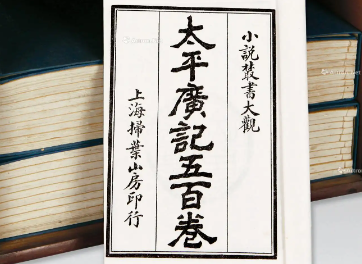 小說叢書大觀
太平廣記五百卷
上海掃葉山房印行